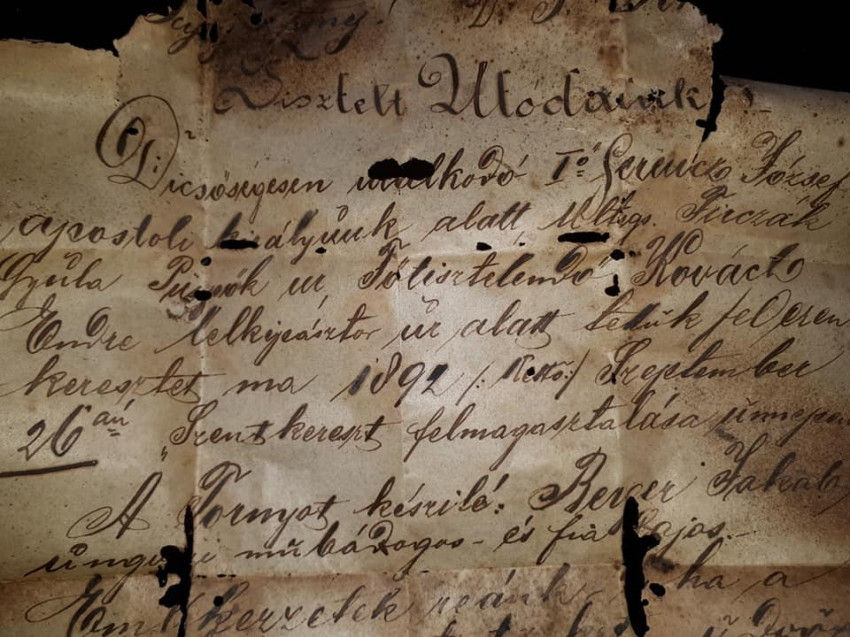 Tisztelt Utódaink
Dicsőségesen uralkodó Iső Ferencz József
apostoli királyunk alatt, Mltsgs. Firczák
Gyula Püspök ur, Főtisztelendő Kovács
Endre lelkipásztor úr alatt tettük fel Ezen
keresztet ma 1892 /: Kettő:/ Szeptember
26 án „Szent kereszt felmagasztalása ünnepén
A Tornyot készité: Berger Jakab
mű bádogos - és fia Lajos.
Emlékezzetek reánk - ha a